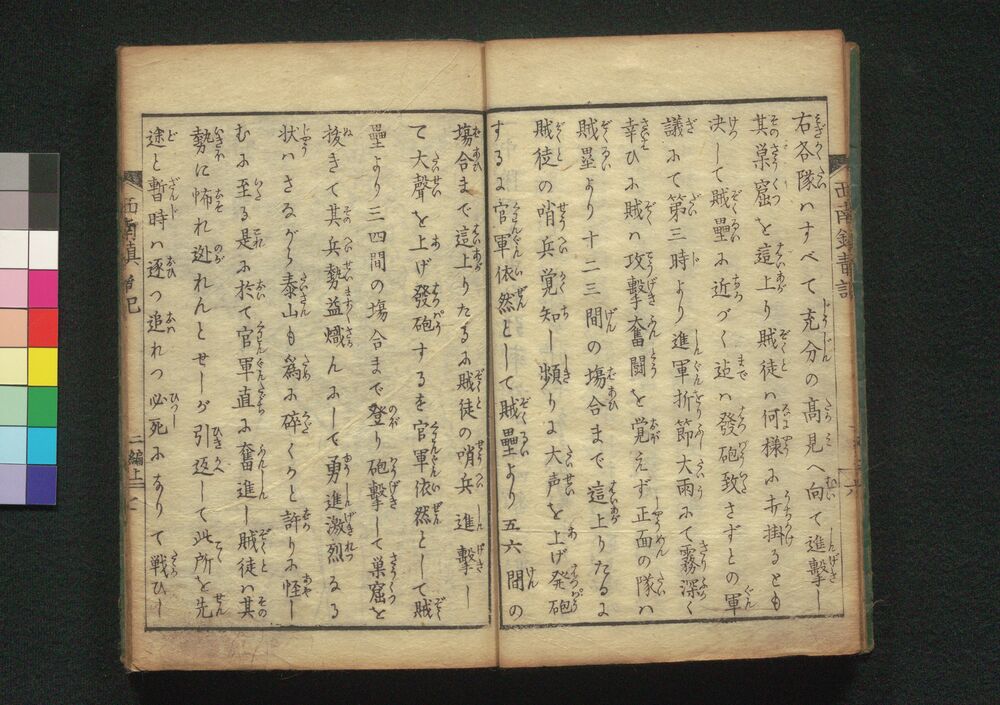 右各隊ハすべて充分の髙見へ向て進撃し
其巣窟を這上り賊徒ハ何様に打掛るとも
決して賊壘に近づく迠ハ發砲致さずとの軍
議にて第三時より進軍折節大雨にて霧深く
幸ひに賊ハ攻撃奮鬪を覚えず正面の隊ハ
賊塁より十二三間の塲合まで這上りたるに
賊徒の哨兵覚知し頻りに大声を上げ発砲
するに官軍依然として賊壘より五六間の
塲合まで這上りたるに賊徒の哨兵進擊し
て大聲を上げ發砲するを官軍依然として賊
壘より三四間の塲合まで登り砲撃して巣窟を
抜きて其兵勢益熾んにして勇進激烈なる
状ハさながら泰山も為に碎くかと許りに怪し
むに至る是に於て官軍直に奮進し賊徒ハ其
勢に怖れ迯れんとせしが引返して此所を先
途と暫時ハ逐つ追れつ必死になりて戦ひし
西南鎮静記
二編上